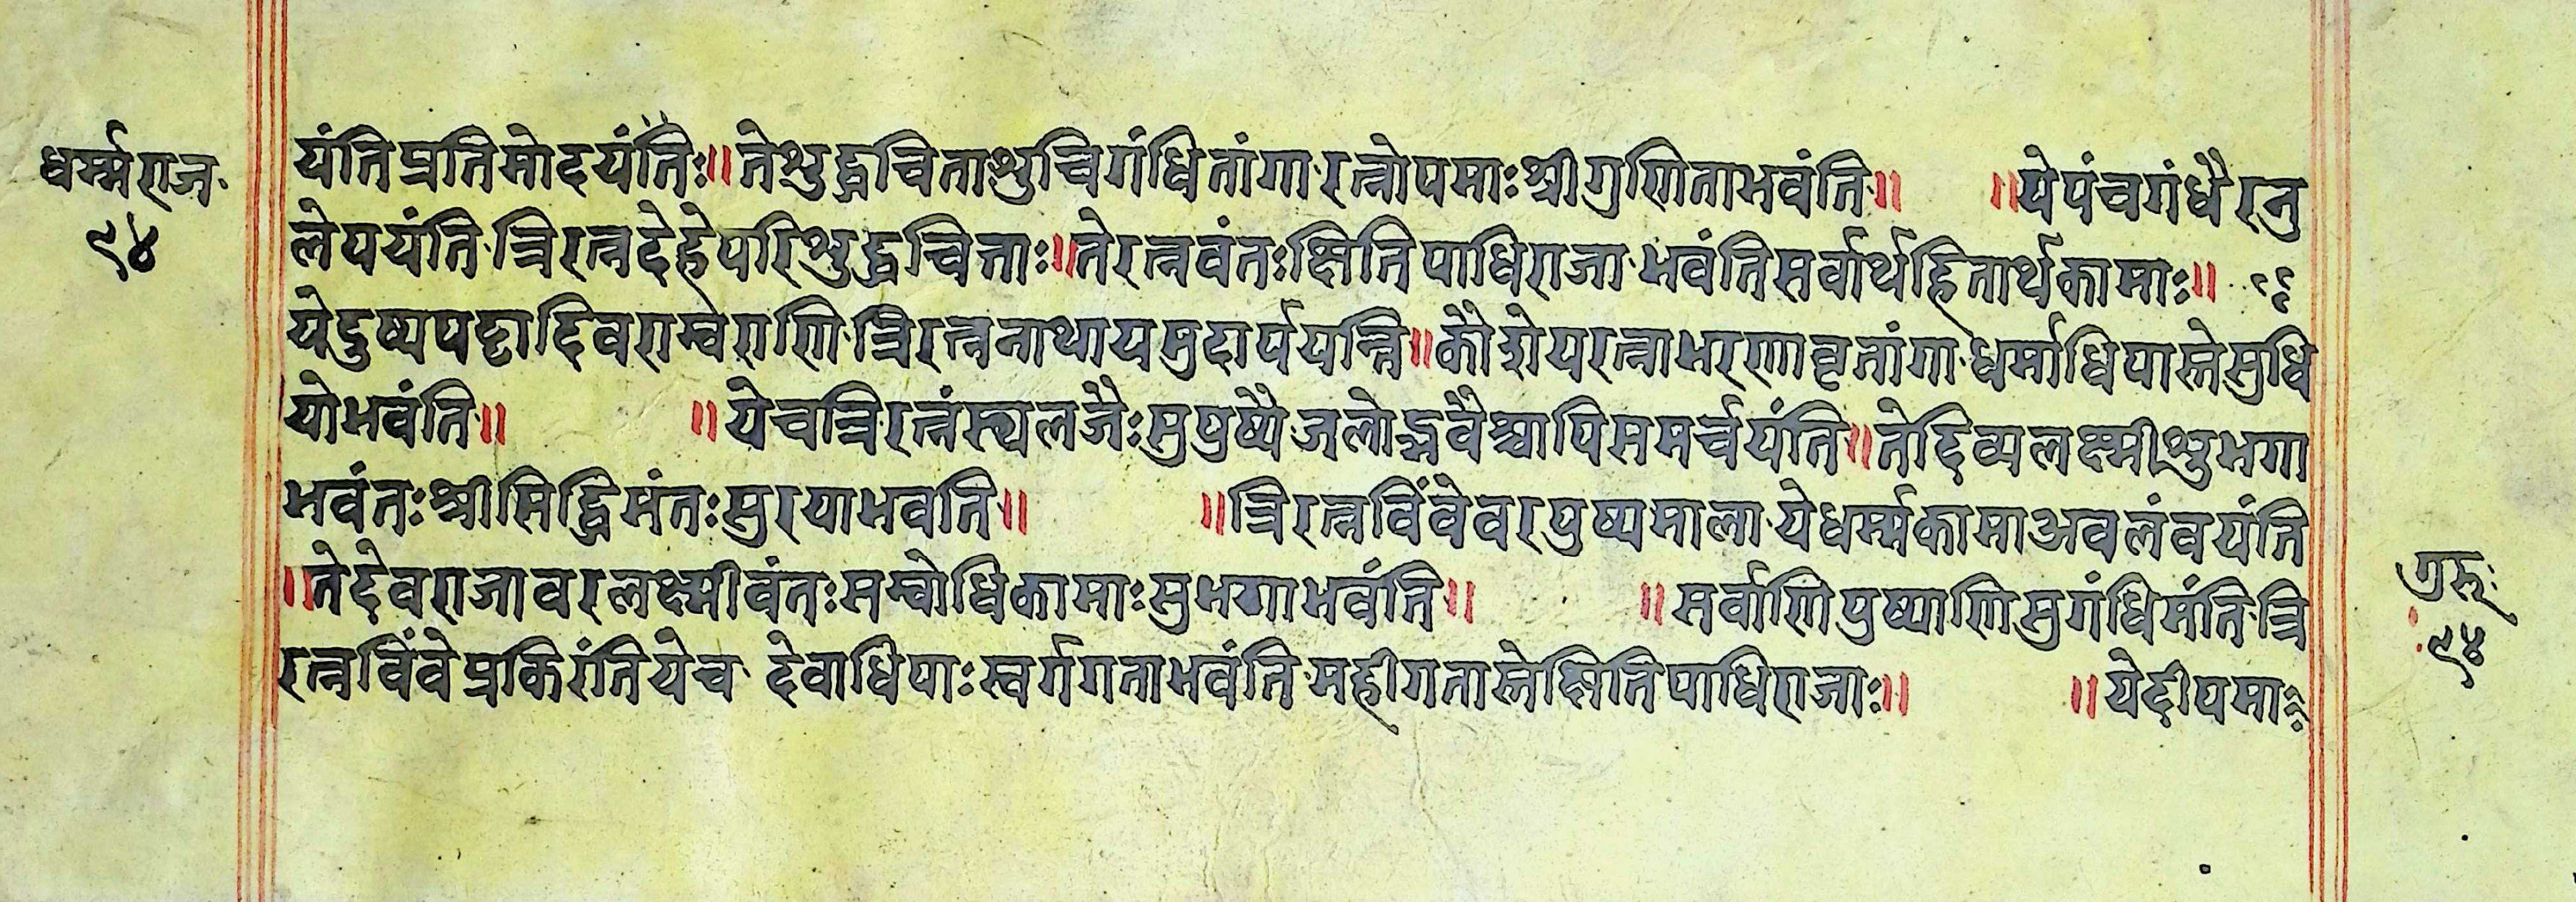 धर्म्मराज
९४
यंतिप्रतिमोदयंतिः॥तेशुद्धचिताशुचिगंधितांगा·रत्नोपमाःश्रीगुणिताभवंति॥ ॥येपंचगंधैरनु
लेपयंति·त्रिरत्नदेहेपरिशुद्धचित्ताः॥तेरत्नवंतःक्षितिपाधिराजा·भवंतिसर्वार्थहितार्थकामाः॥
येदुष्यपट्टादिवराम्वराणि·त्रिरत्ननाथायमुदार्पयन्ति॥कौशेयरत्नाभरणावृतांगा·धर्माधिपास्तेसुधि
योभवंति॥ ॥येचत्रिरत्नंस्थलजैःसुपुष्पै·जलोद्भवैश्चापिसमर्चयंति॥तेदिव्यलक्ष्मीशुभगा
भवंतःश्रीसिद्धिमंतःसुरयाभवति॥ ॥त्रिरत्नविंवेवरपुष्पमाला·येधर्म्मकामाअवलंवयंति
॥तेदेवराजावरलक्ष्मीवंतःसम्वोधिकामाःसुभगाभवंति॥ ॥सर्वाणिपुष्पाणिसुगंधिमंति·त्रि
रत्नविंवेप्रकिरंतियेच· देवाधिपाःस्वर्गगताभवंति·महीगतास्तेक्षितिपाधिराजाः॥ ॥येदीपमाः
गुरूः
९४